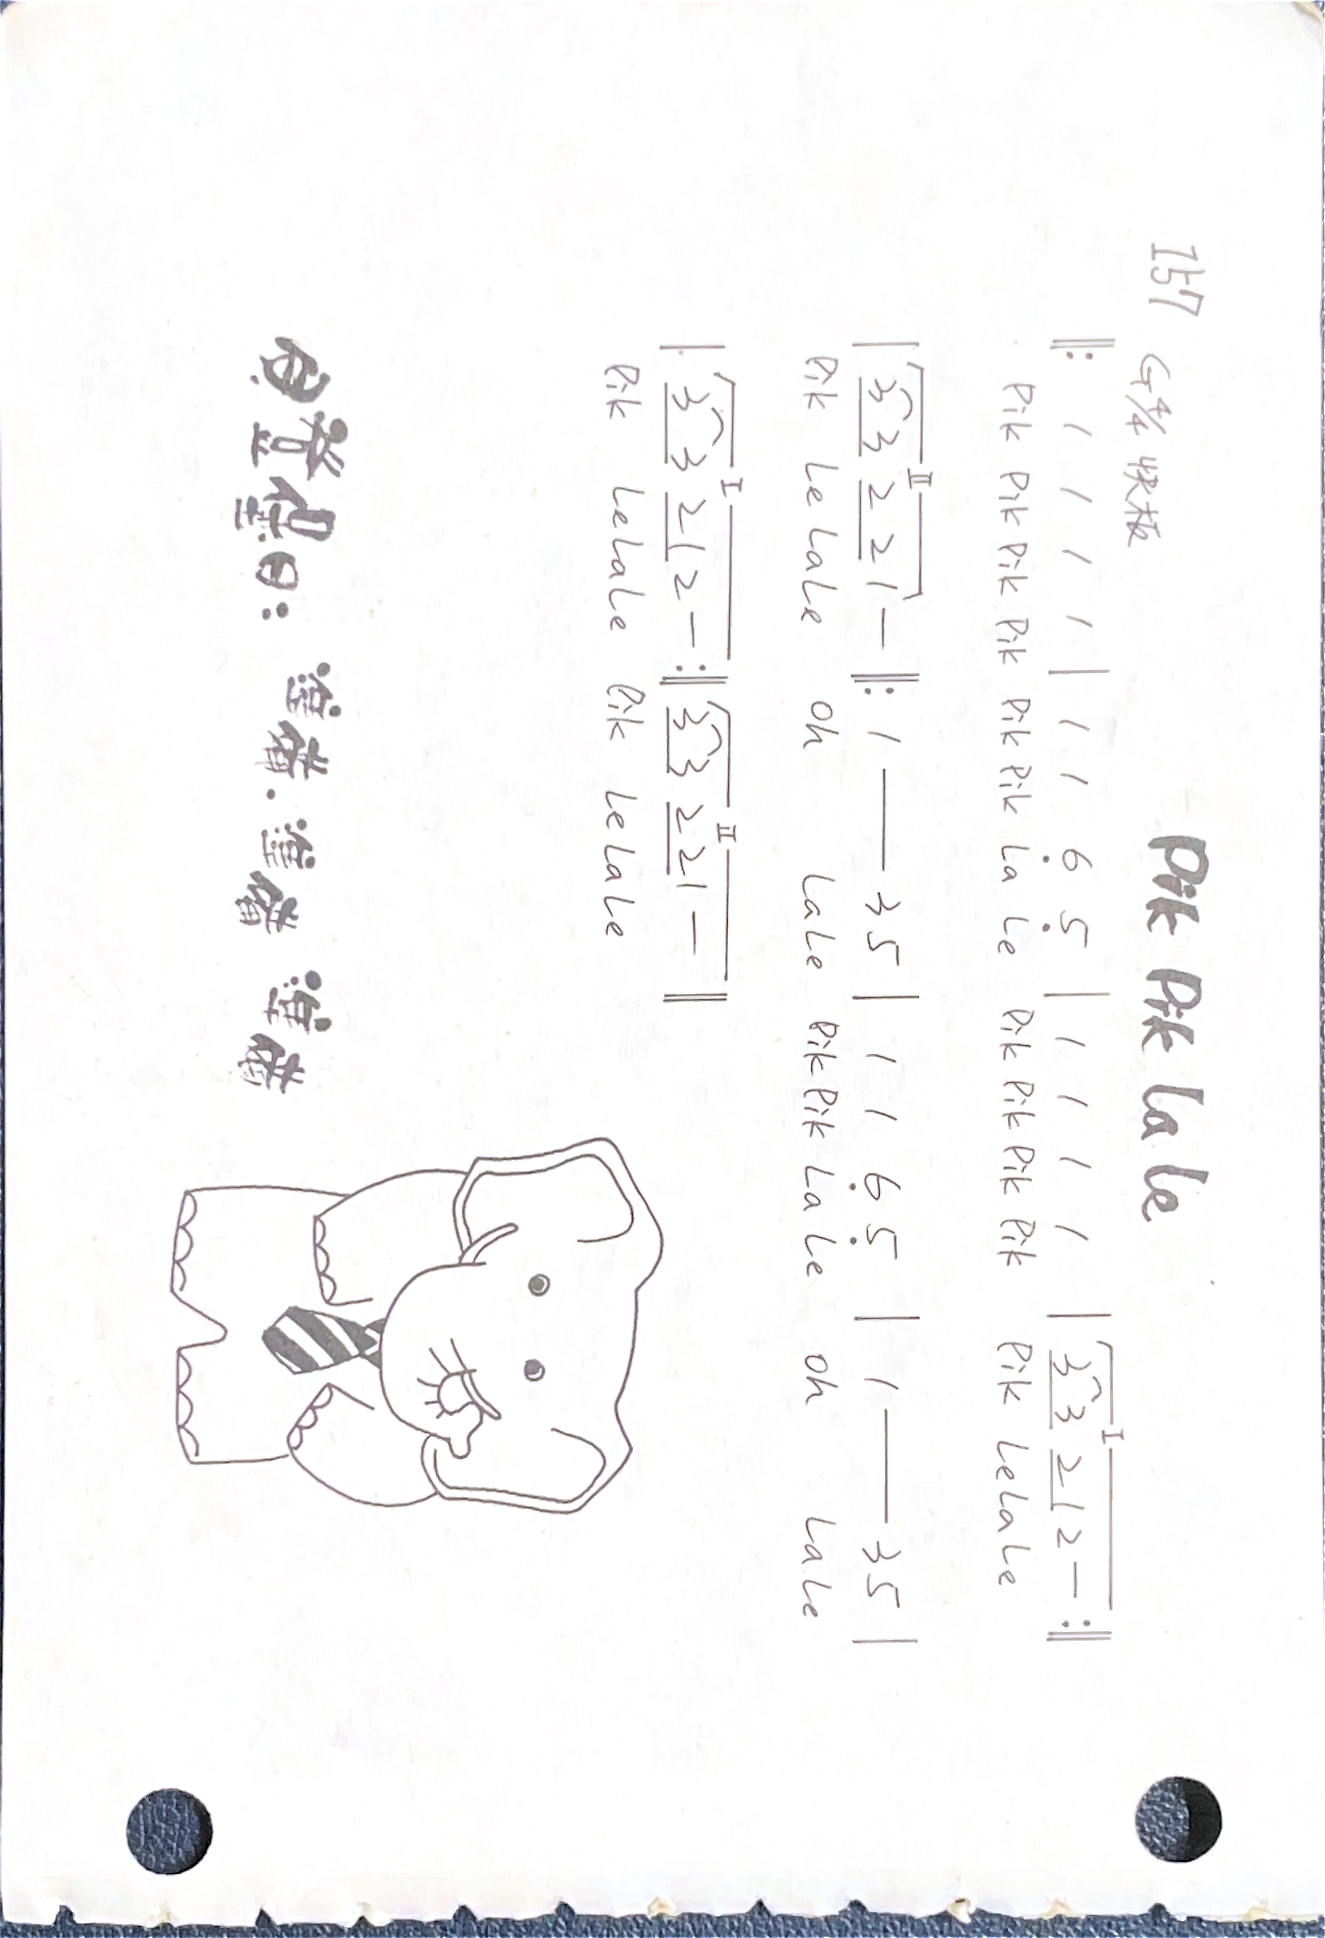 157 G 4/4 快板 Pik Pik La Le
‖: 1 1 1 1 | 1 1 6̣ 5̣ | 1 1 1 1 | I 3 3 2 1 2 — :‖
Pik Pik Pik Pik Pik Pik La Le Pik Pik Pik Pik Pik Le La Le
| II 3 3 2 2 1 — ‖: 1 —— 3 5 | 1 1 6̣ 5̣ | 1 —— 3 5 |
Pik Le La Le Oh La Le Pik Pik La Le Oh La Le
| I 3 3 2 1 2 — :‖ II 3 3 2 2 1 — ‖
Pik Le La Le Pik Le La Le
貝登堡曰: 準備.準備 準備